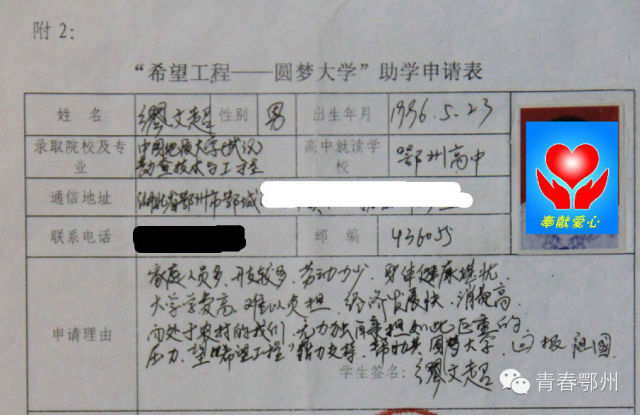 附2：
“希望工程——圆梦大学”助学申请表
姓 名 缪文超 性别 男 出生年月 1996.5.23
录取院校及专业 中国地质大学(武汉) 勘查技术与工程 高中就读学校 鄂州高中
通信地址 湖北省鄂州市鄂城
联系电话 邮 编 436055
申请理由
家庭人员多，开支较多，劳动力少，身体健康堪忧，
大学学费高，难以负担，经济发展快，消费高，
而处于农村的我们，无力独自承担如此巨重的
压力，望“希望工程”鼎力支持，帮助其圆梦大学，回报祖国
学生签名：缪文超
奉献爱心
青春鄂州